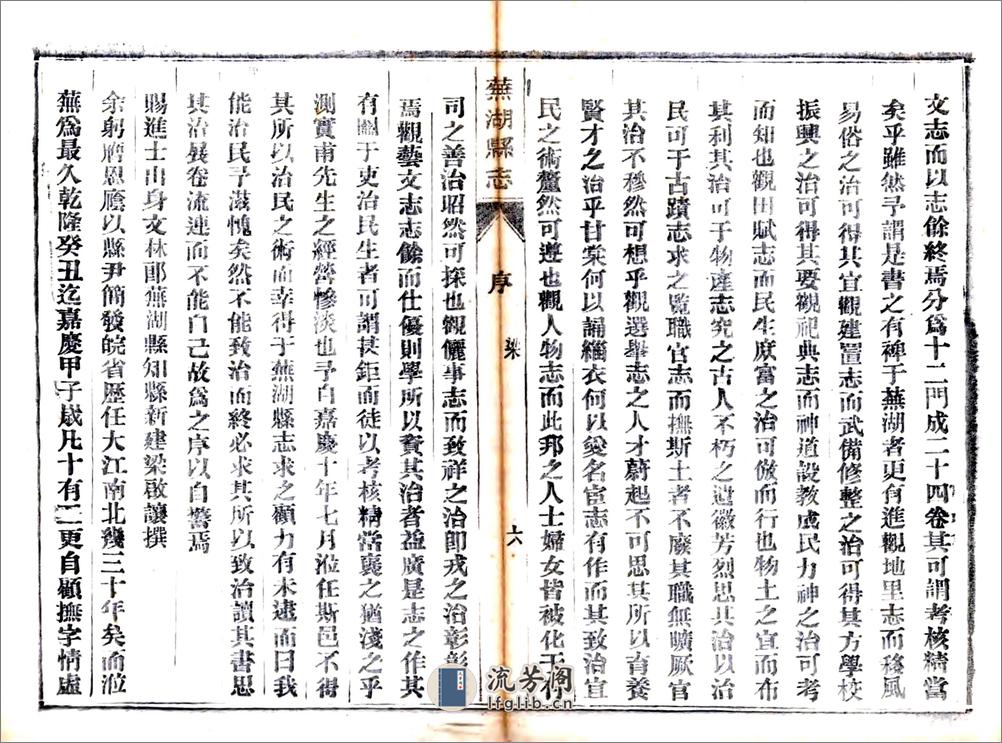 文志而以志餘終焉分爲十二門成二十四卷其可謂考核精當
矣乎雖然予謂是書之有裨于蕪湖者更有進觀地里志而移風
易俗之治可得其宜觀建置志而武備修整之治可得其方學校
振興之治可得其要觀祀典志而神道設教成民力神之治可考
而知也觀田賦志而民生庶富之治可倣而行也物土之宜而布
其利其治可于物產志究之古人不朽之遺徽芳烈思其治以治
民可于古蹟志求之覽職官志而撫斯土者不廢其職無曠厥官
其治不穆然可想乎觀選舉志之人才蔚起不可思其所以育養
賢才之治乎甘棠何以誦緇衣何以愛名宦志有作而其致治宜
民之術釐然可遵也觀人物志而此邦之人士婦女皆被化于有
蕪湖縣志
序
梁
六
司之善治昭然可探也觀儷事志而致祥之治即戎之治彰彰
焉觀藝文志志餘而仕優則學所以資其治者益廣是志之作其
有關于吏治民生者可謂甚鉅而徒以考核精當褒之猶淺之乎
測實甫先生之經營慘淡也予自嘉慶十年七月涖任斯邑不得
其所以治民之術而幸得于蕪湖縣志求之顧力有未逮而曰我
能治民予滋愧矣然不能致治而終必求其所以致治讀其書思
其治展卷流連而不能自已故爲之序以自誓焉
賜進士出身文林郎蕪湖縣知縣新建梁啟讓撰
余躬膺恩廕以縣尹簡發皖省歷任大江南北幾三十年矣而涖
蕪爲最久乾隆癸丑迄嘉慶甲子歲凡十有二更自顧撫字情虛
流芳阁
lfglib.cn